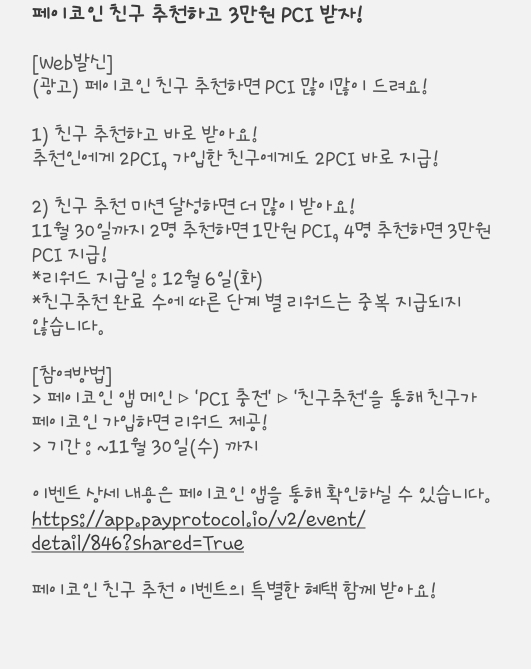 페이코인 친구 추천하고 3만원 PCI 받자!
[Web발신]
(광고) 페이코인 친구 추천하면 PCI 많이많이 드려요!
1) 친구 추천하고 바로 받아요!
추천인에게 2PCI, 가입한 친구에게도 2PCI 바로 지급!
2) 친구 추천 미션 달성하면 더 많이 받아요!
11월 30일까지 2명 추천하면 1만원 PCI, 4명 추천하면 3만원
PCI 지급!
*리워드 지급일 : 12월 6일(화)
*친구추천 완료 수에 따른 단계 별 리워드는 중복 지급되지
않습니다.
[참여방법]
> 페이코인 앱 메인 ▷ 'PCI 충전' ▷ '친구추천'을 통해 친구가
페이코인 가입하면 리워드 제공!
> 기간 : ~11월 30일(수) 까지
이벤트 상세 내용은 페이코인 앱을 통해 확인하실 수 있습니다.
https://app.payprotocol.io/v2/event/
detail/846?shared=True
페이코인 친구 추천 이벤트의 특별한 혜택 함께 받아요!